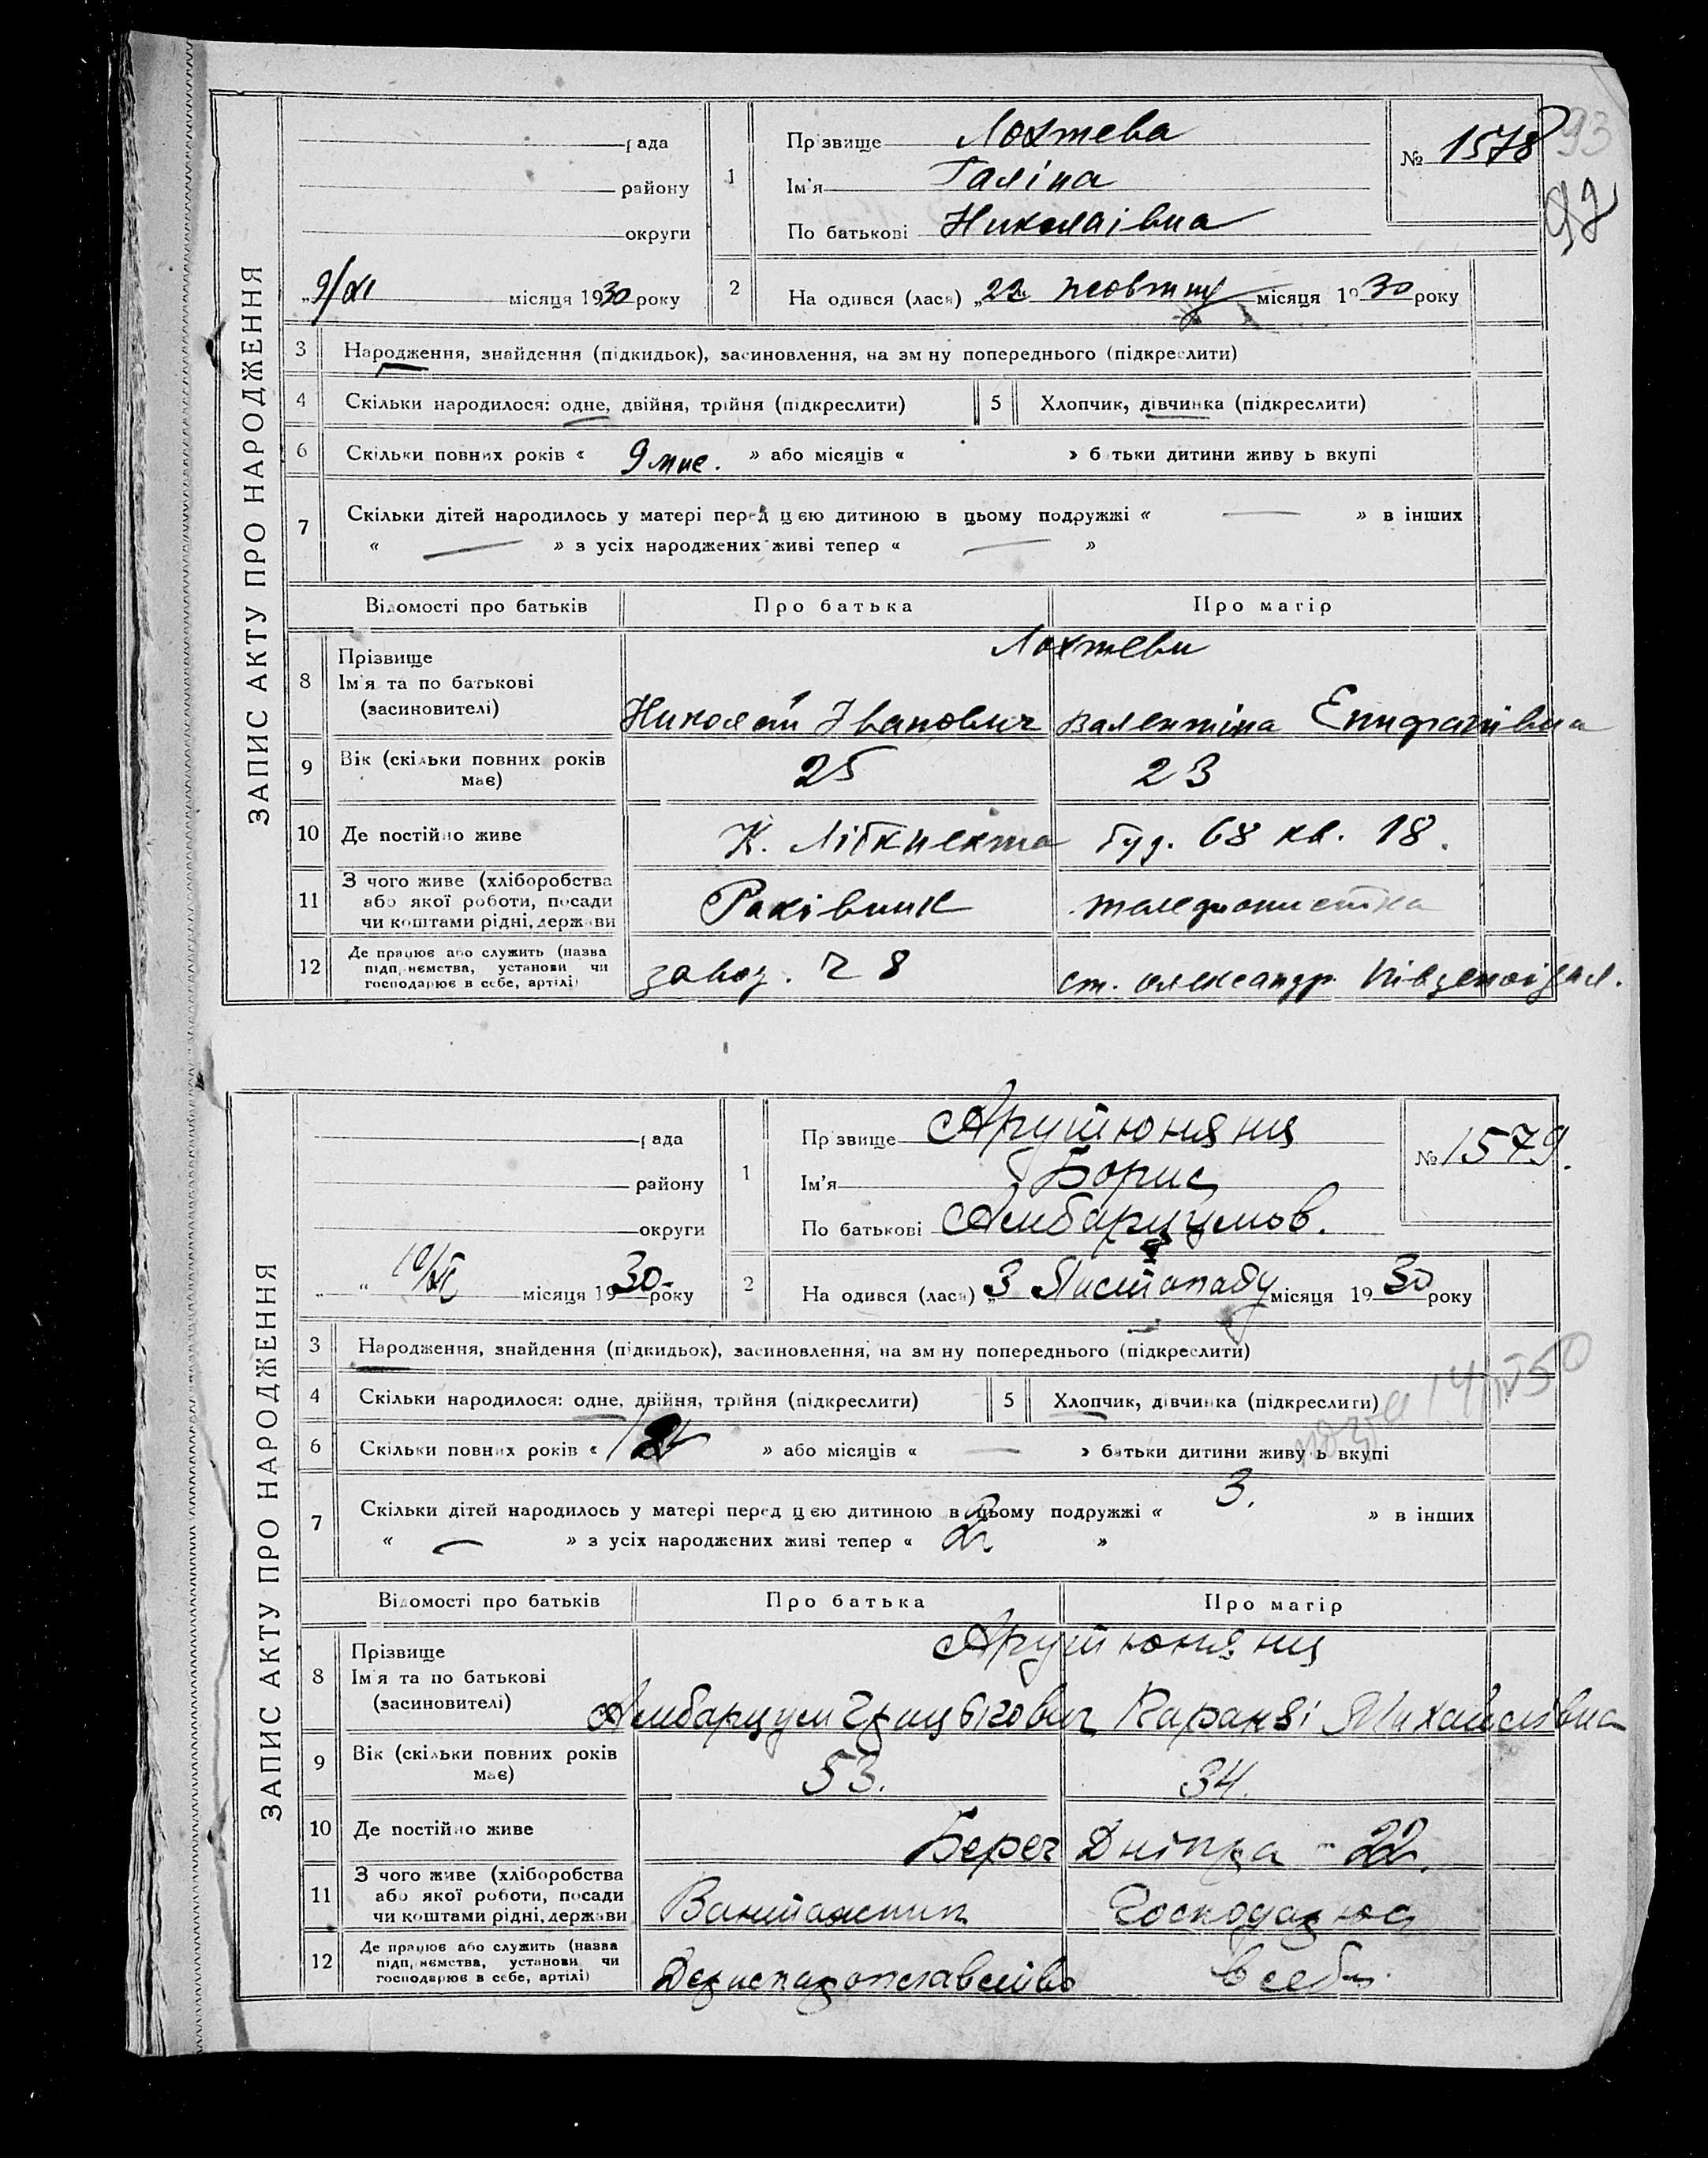 93
92
ЗАПИС АКТУ ПРО НАРОДЖЕННЯ
рада
району
округи
„9/XI місяця 1930 року
1
Прізвище Лохтева
Ім'я Галіна
По батькові Николаівна
№ 1578
2
На одився (лася) „22 жовтня місяця 1930 року
3 Народження, знайдення (підкидьок), засиновлення, на зміну попереднього (підкреслити)
4 Скільки народилося: одне, двійня, трійня (підкреслити)
5 Хлопчик, дівчинка (підкреслити)
6 Скільки повних років « 9 мис. » або місяців « » батьки дитини живуть вкупі
7 Скільки дітей народилось у матері перед цією дитиною в цьому подружжі « — » в інших
« — » з усіх народжених живі тепер « — »
Відомості про батьків Про батька Про матір
8 Прізвище
Ім'я та по батькові
(засиновителі)
Лохтеви
Николай Іванович Валентіна Епифанівна
9 Вік (скільки повних років має) 25 23
10 Де постійно живе К. Лібкнехта буд. 68 кв. 18.
11 З чого живе (хліборобства
або якої роботи, посади
чи коштами рідні, держави
Рахівник телефонистка
12 Де працює або служить (назва
підприємства, установи чи
господарює в себе, артілі)
завод. ч 8 ст. олександр. Південоі зал.
ЗАПИС АКТУ ПРО НАРОДЖЕННЯ
рада
району
округи
„ “ 10/XI місяця 1930 року
1
Прізвище Арутюнянц
Ім'я Борис
По батькові Амбарцумов.
№ 1579.
2
На одився (лася) „3 Листопаду місяця 1930 року
3 Народження, знайдення (підкидьок), засиновлення, на зміну попереднього (підкреслити)
4 Скільки народилося: одне, двійня, трійня (підкреслити)
5 Хлопчик, дівчинка (підкреслити)
14/IV 50
6 Скільки повних років « » або місяців « — » батьки дитини живуть вкупі
7 Скільки дітей народилось у матері перед цією дитиною в цьому подружжі « 3. » в інших
« — » з усіх народжених живі тепер « 2 »
Відомості про батьків Про батька Про матір
8 Прізвище
Ім'я та по батькові
(засиновителі)
Арутюнянц
Амбарцум Михайлівна
9 Вік (скільки повних років має) 53. 34.
10 Де постійно живе Берег Дніпра - 22.
11 З чого живе (хліборобства
або якої роботи, посади
чи коштами рідні, держави
Вантажник Господарює
12 Де працює або служить (назва
підприємства, установи чи
господарює в себе, артілі)
Держпароплавство в себе.